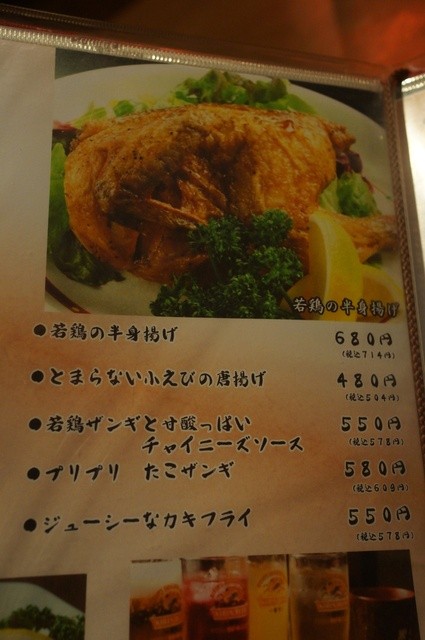 若鶏の半身揚げ
●若鶏の半身揚げ 680円
(税込714円)
●とまらないふえびの唐揚げ 480円
(税込504円)
●若鶏ザンギと甘酸っぱい 550円
チャイニーズソース (税込578円)
●プリプリ たこザンギ 580円
(税込609円)
●ジューシーなカキフライ 550円
(税込578円)